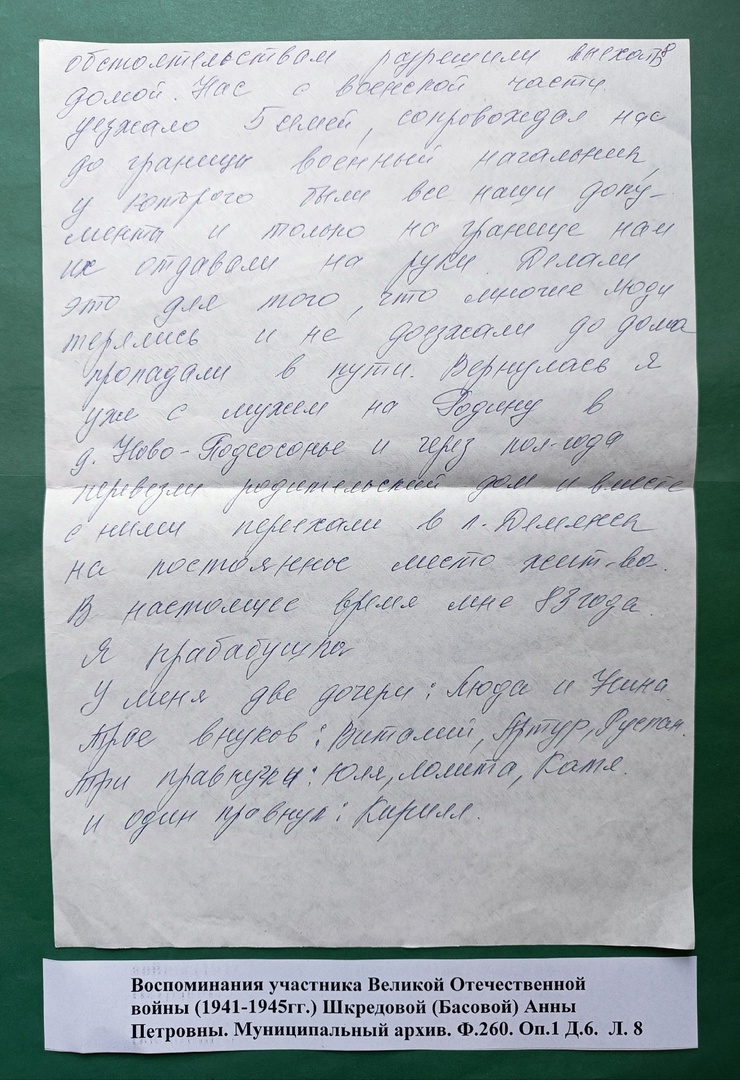 обстоятельствам разрешили выехать
домой. Нас с военской части
уезжало 5 семей, сопровождал нас
до границы военный начальник,
у которого были все наши доку-
менты и только на границе нам
их отдавали на руки. Делали
это для того, что многие люди
терялись и не доезжали до дома
пропадали в пути. Вернулась я
уже с мужем на Родину в
д. Ново-Подсосонье и через пол-года
перевезли родительский дом и вместе
с ними переехали в п. Демянск
на постоянное место жит-ва.
В настоящее время мне 83 года.
Я прабабушка
У меня две дочери: Люда и Нина
Трое внуков: Виталий, Артур, Руслан.
Три правнучки: Юля, Лолита, Катя.
и один правнук: Кирилл.
Воспоминания участника Великой Отечественной
войны (1941-1945гг.) Шкредовой (Басовой) Анны
Петровны. Муниципальный архив. Ф.260. Оп.1 Д.6. Л. 8